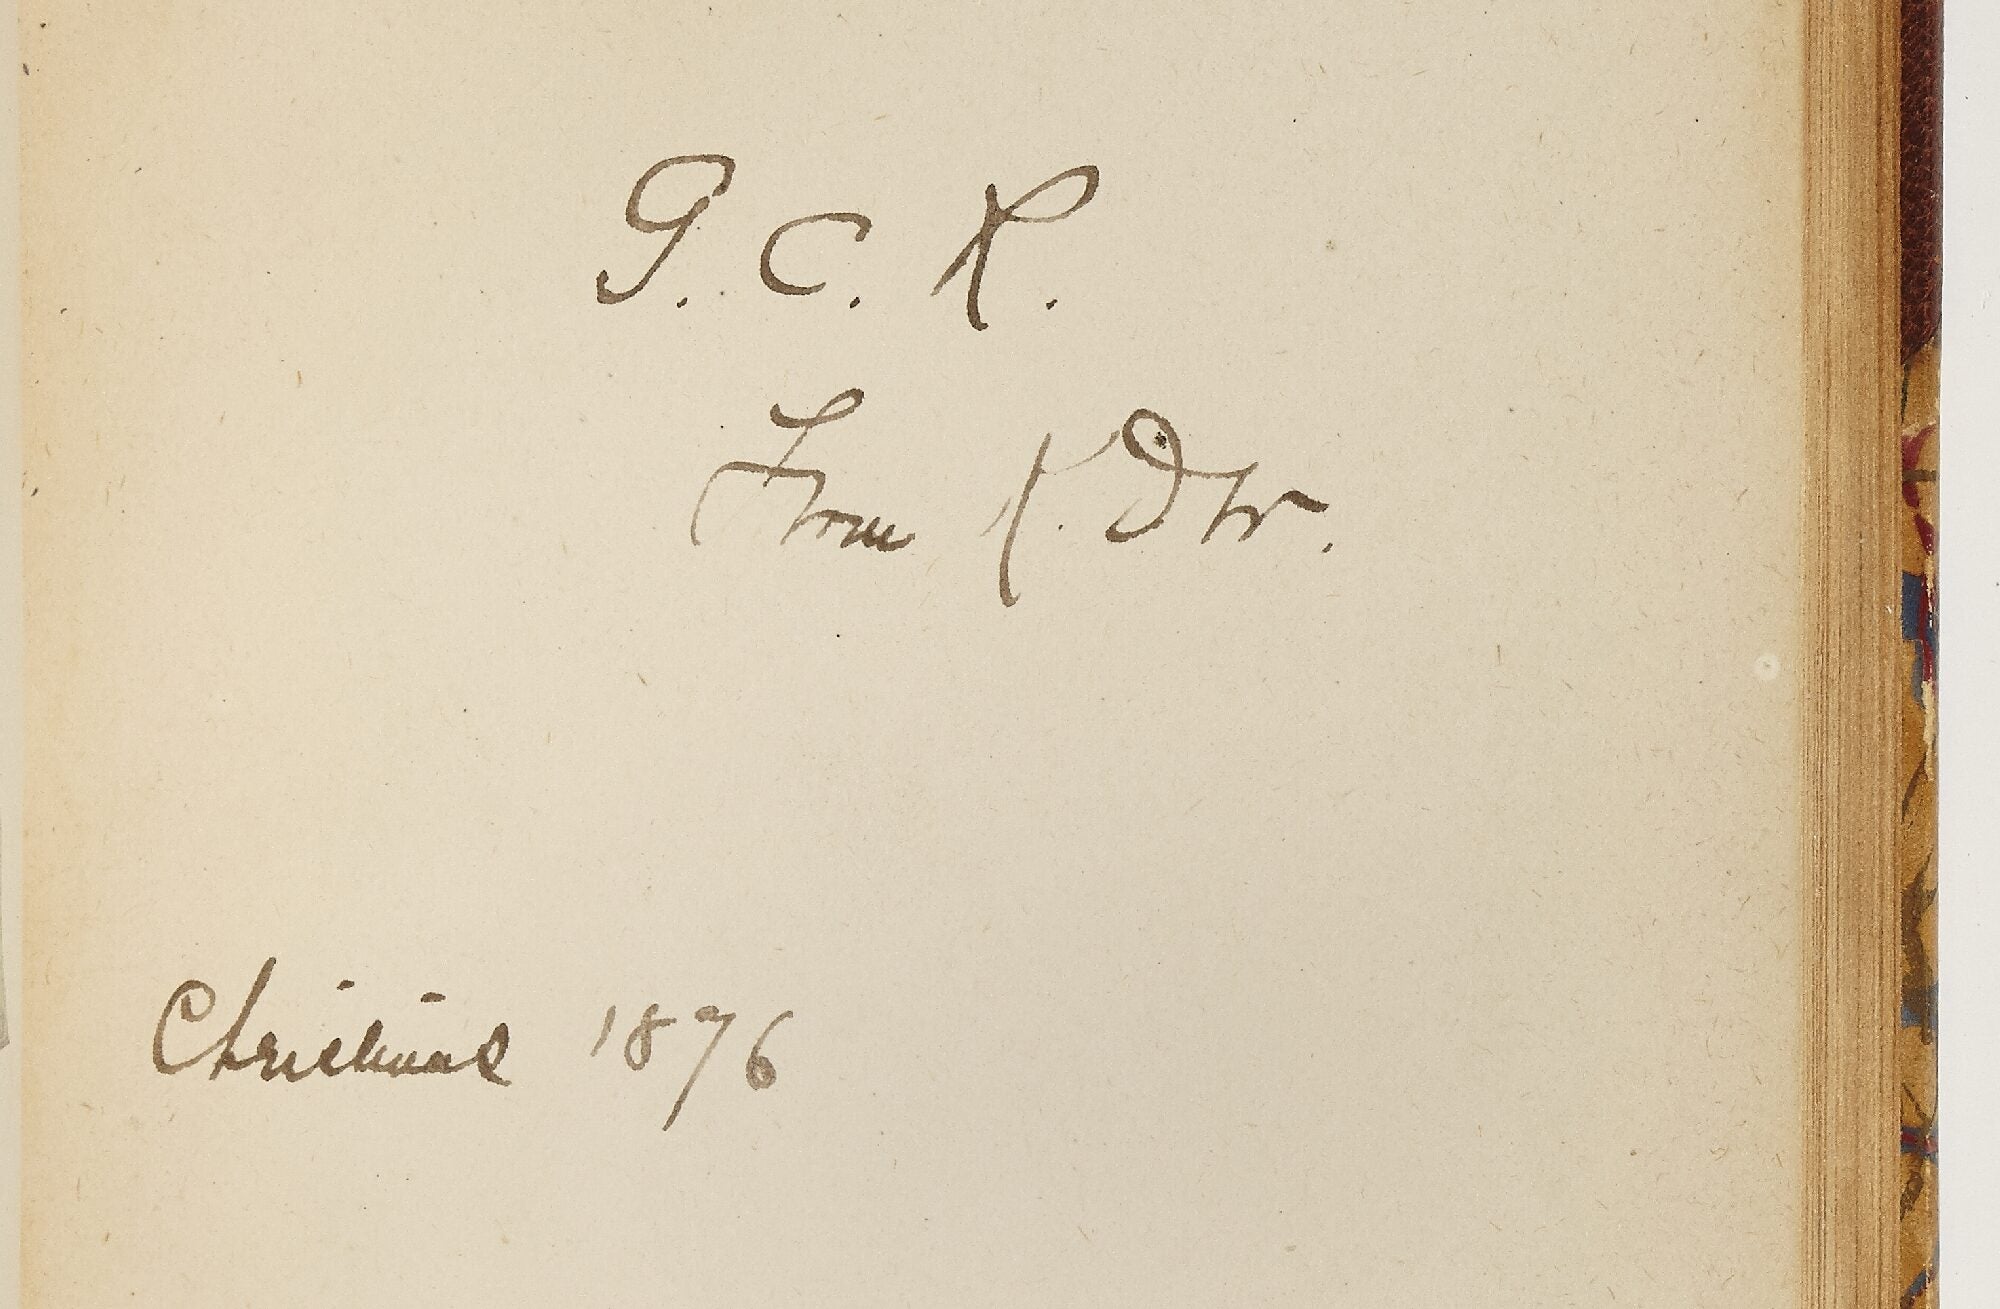 G. C. R.
From
Christmas 1876